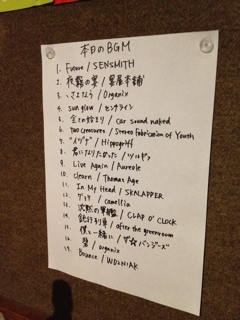 本日のBGM
1. Future / SENSMITH
2. 夜鷹の夢 / 暑屋本舗
3. さよなら / Organix
4. sun glow / センチライン
5. 全ての始まり / Car sound naked
6. two creatures / Stereo Fabrication of Youth
7. "イヅナ" / Hippogriff
8. 君になりたかった /
9. Live Again / Aureole
10. clearn / Thomas Age
11. In My Head / SKALAPPER
12. / camellia
13. 沈黙の軍艦 / CLAP O' CLOCK
14. 銀行列車 / after the greenroom
15. 僕と一緒に / ザ☆バンジーズ
16. 碧 / organix
17. Bounce / WOZNIAK